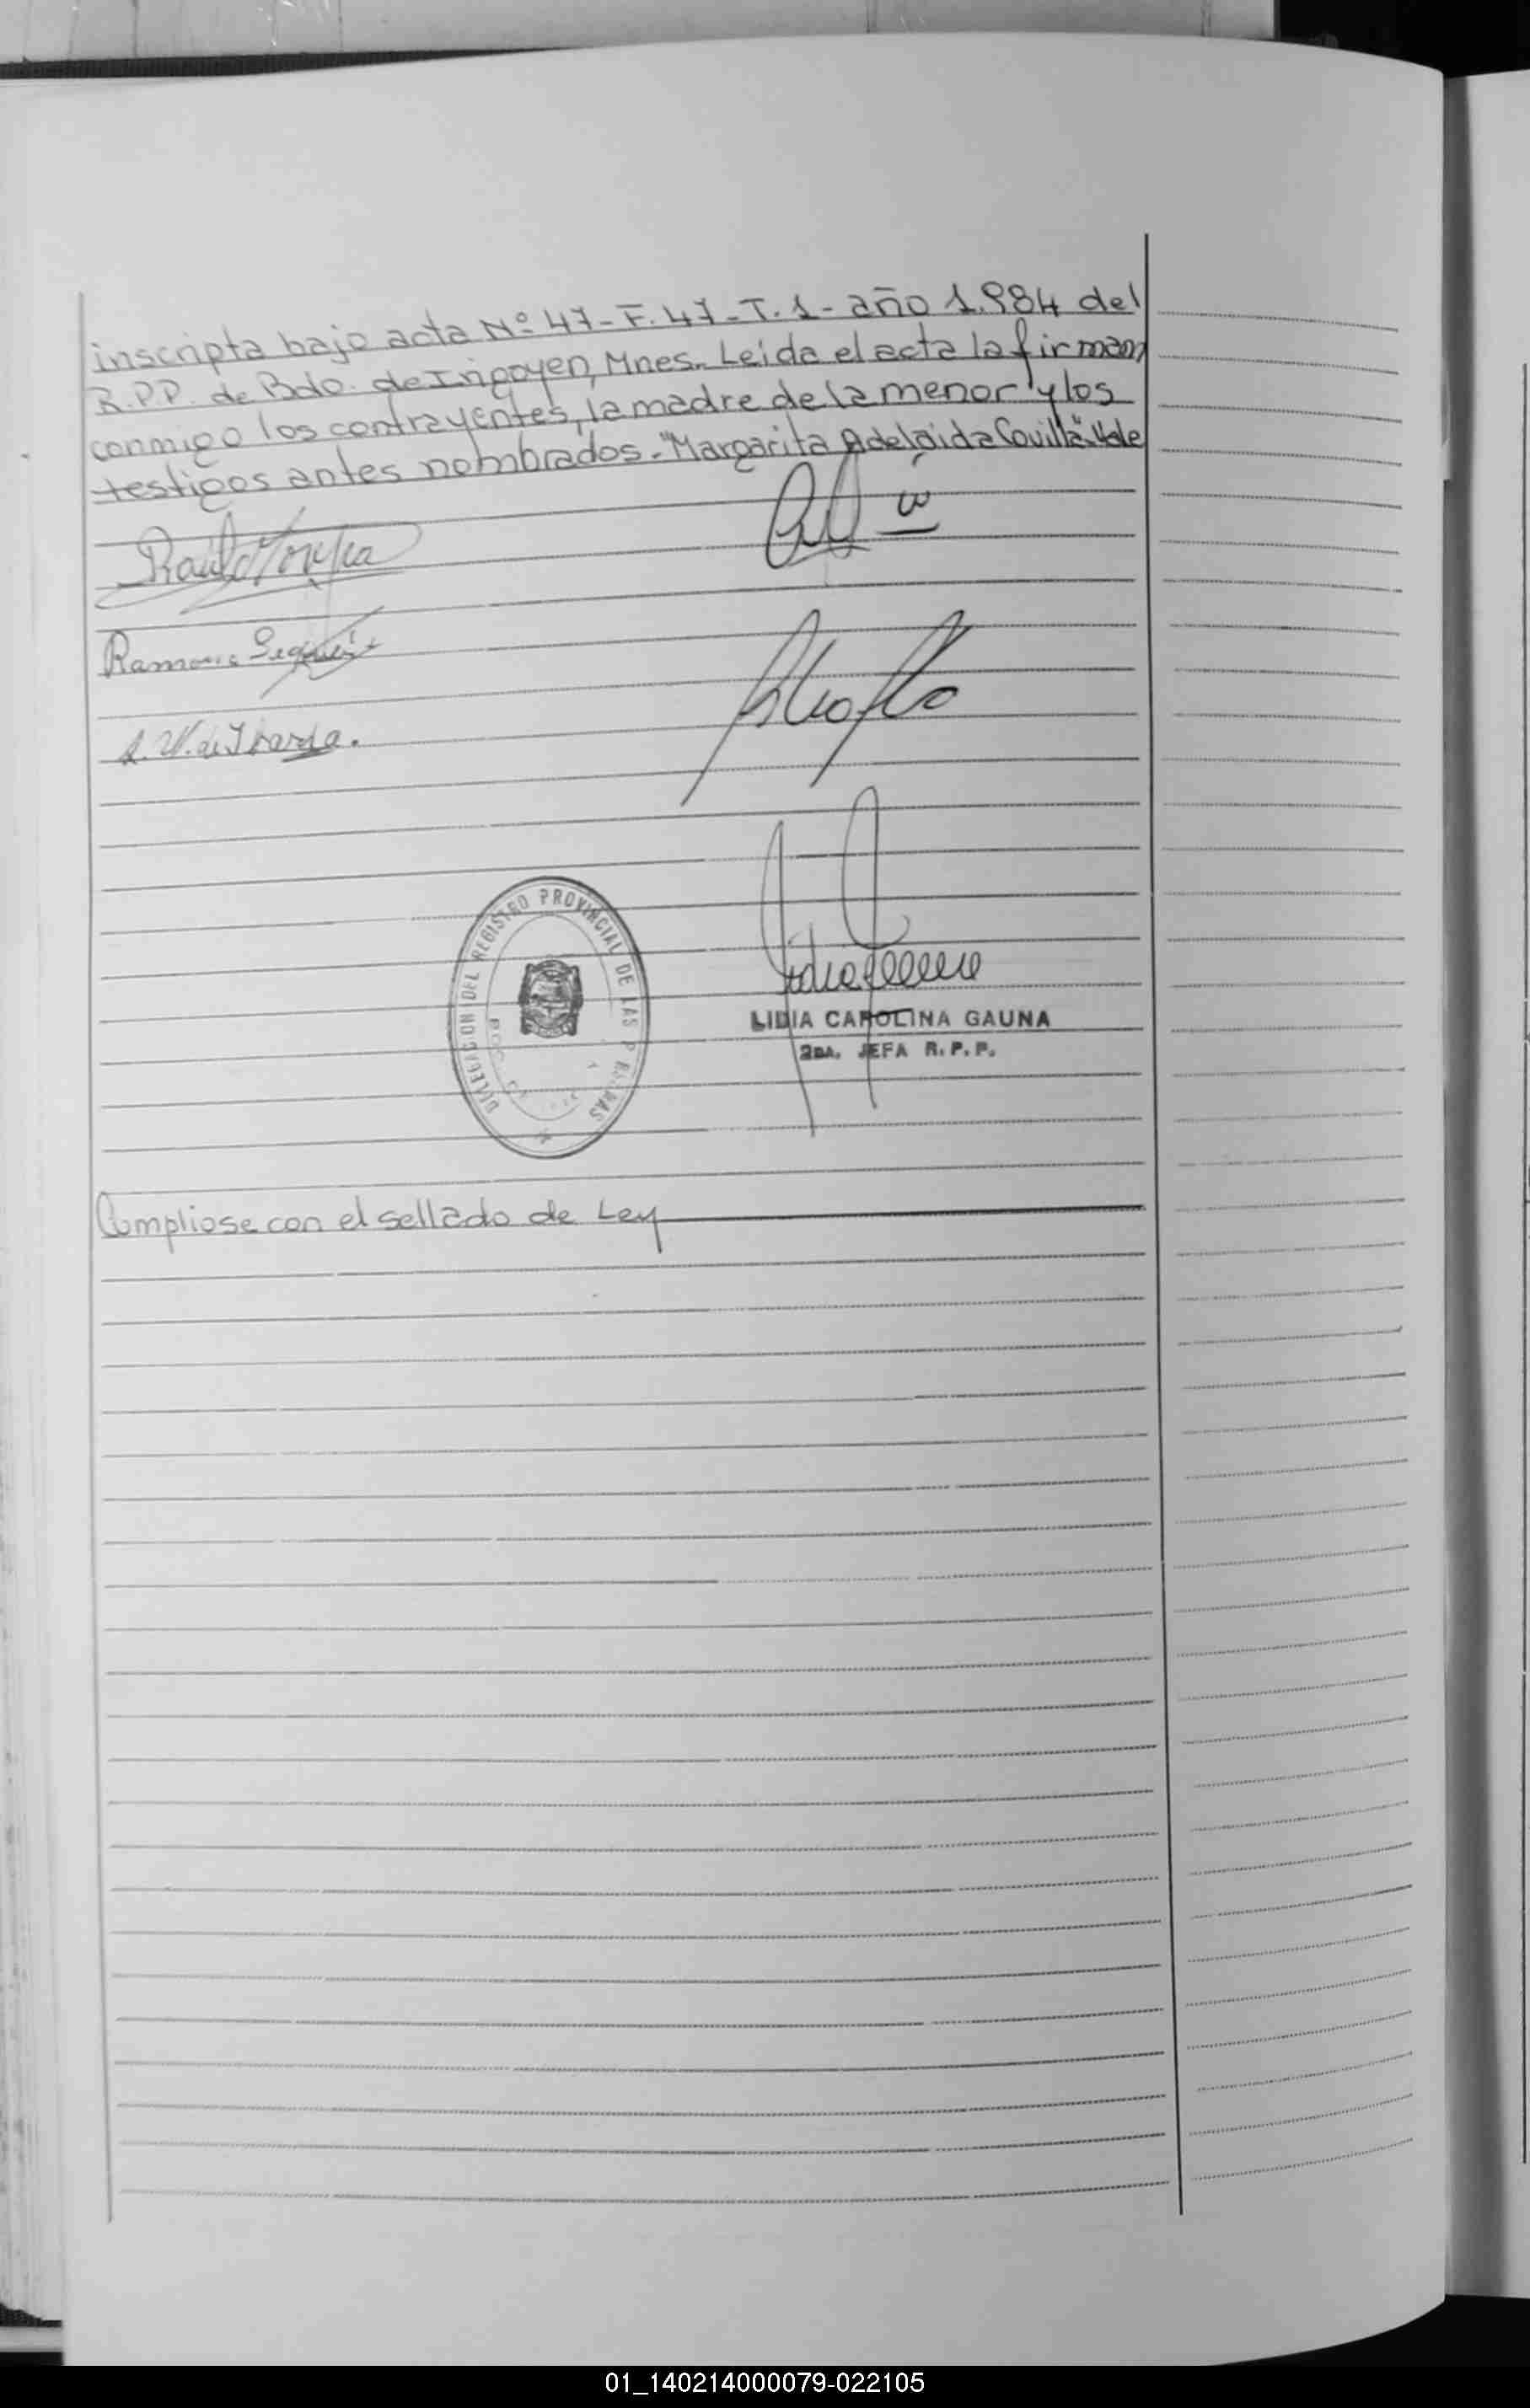 inscripta bajo acta Nº 47 - F. 47 - T. 1 - año 1.984 del
R.P.P. de Bdo. de Irigoyen, Mnes. Leida el acta la firman
conmigo los contrayentes, la madre de la menor y los
testigos antes nombrados. "Margarita Adelaida Covilla" Vale
Raul
Ramona
de Ibarra.
DELEGACION DEL REGISTRO PROVINCIAL DE LAS PERSONAS
LIDIA CAROLINA GAUNA
2DA. JEFA R.P.P.
Cumpliose con el sellado de Ley
01_140214000079-022105